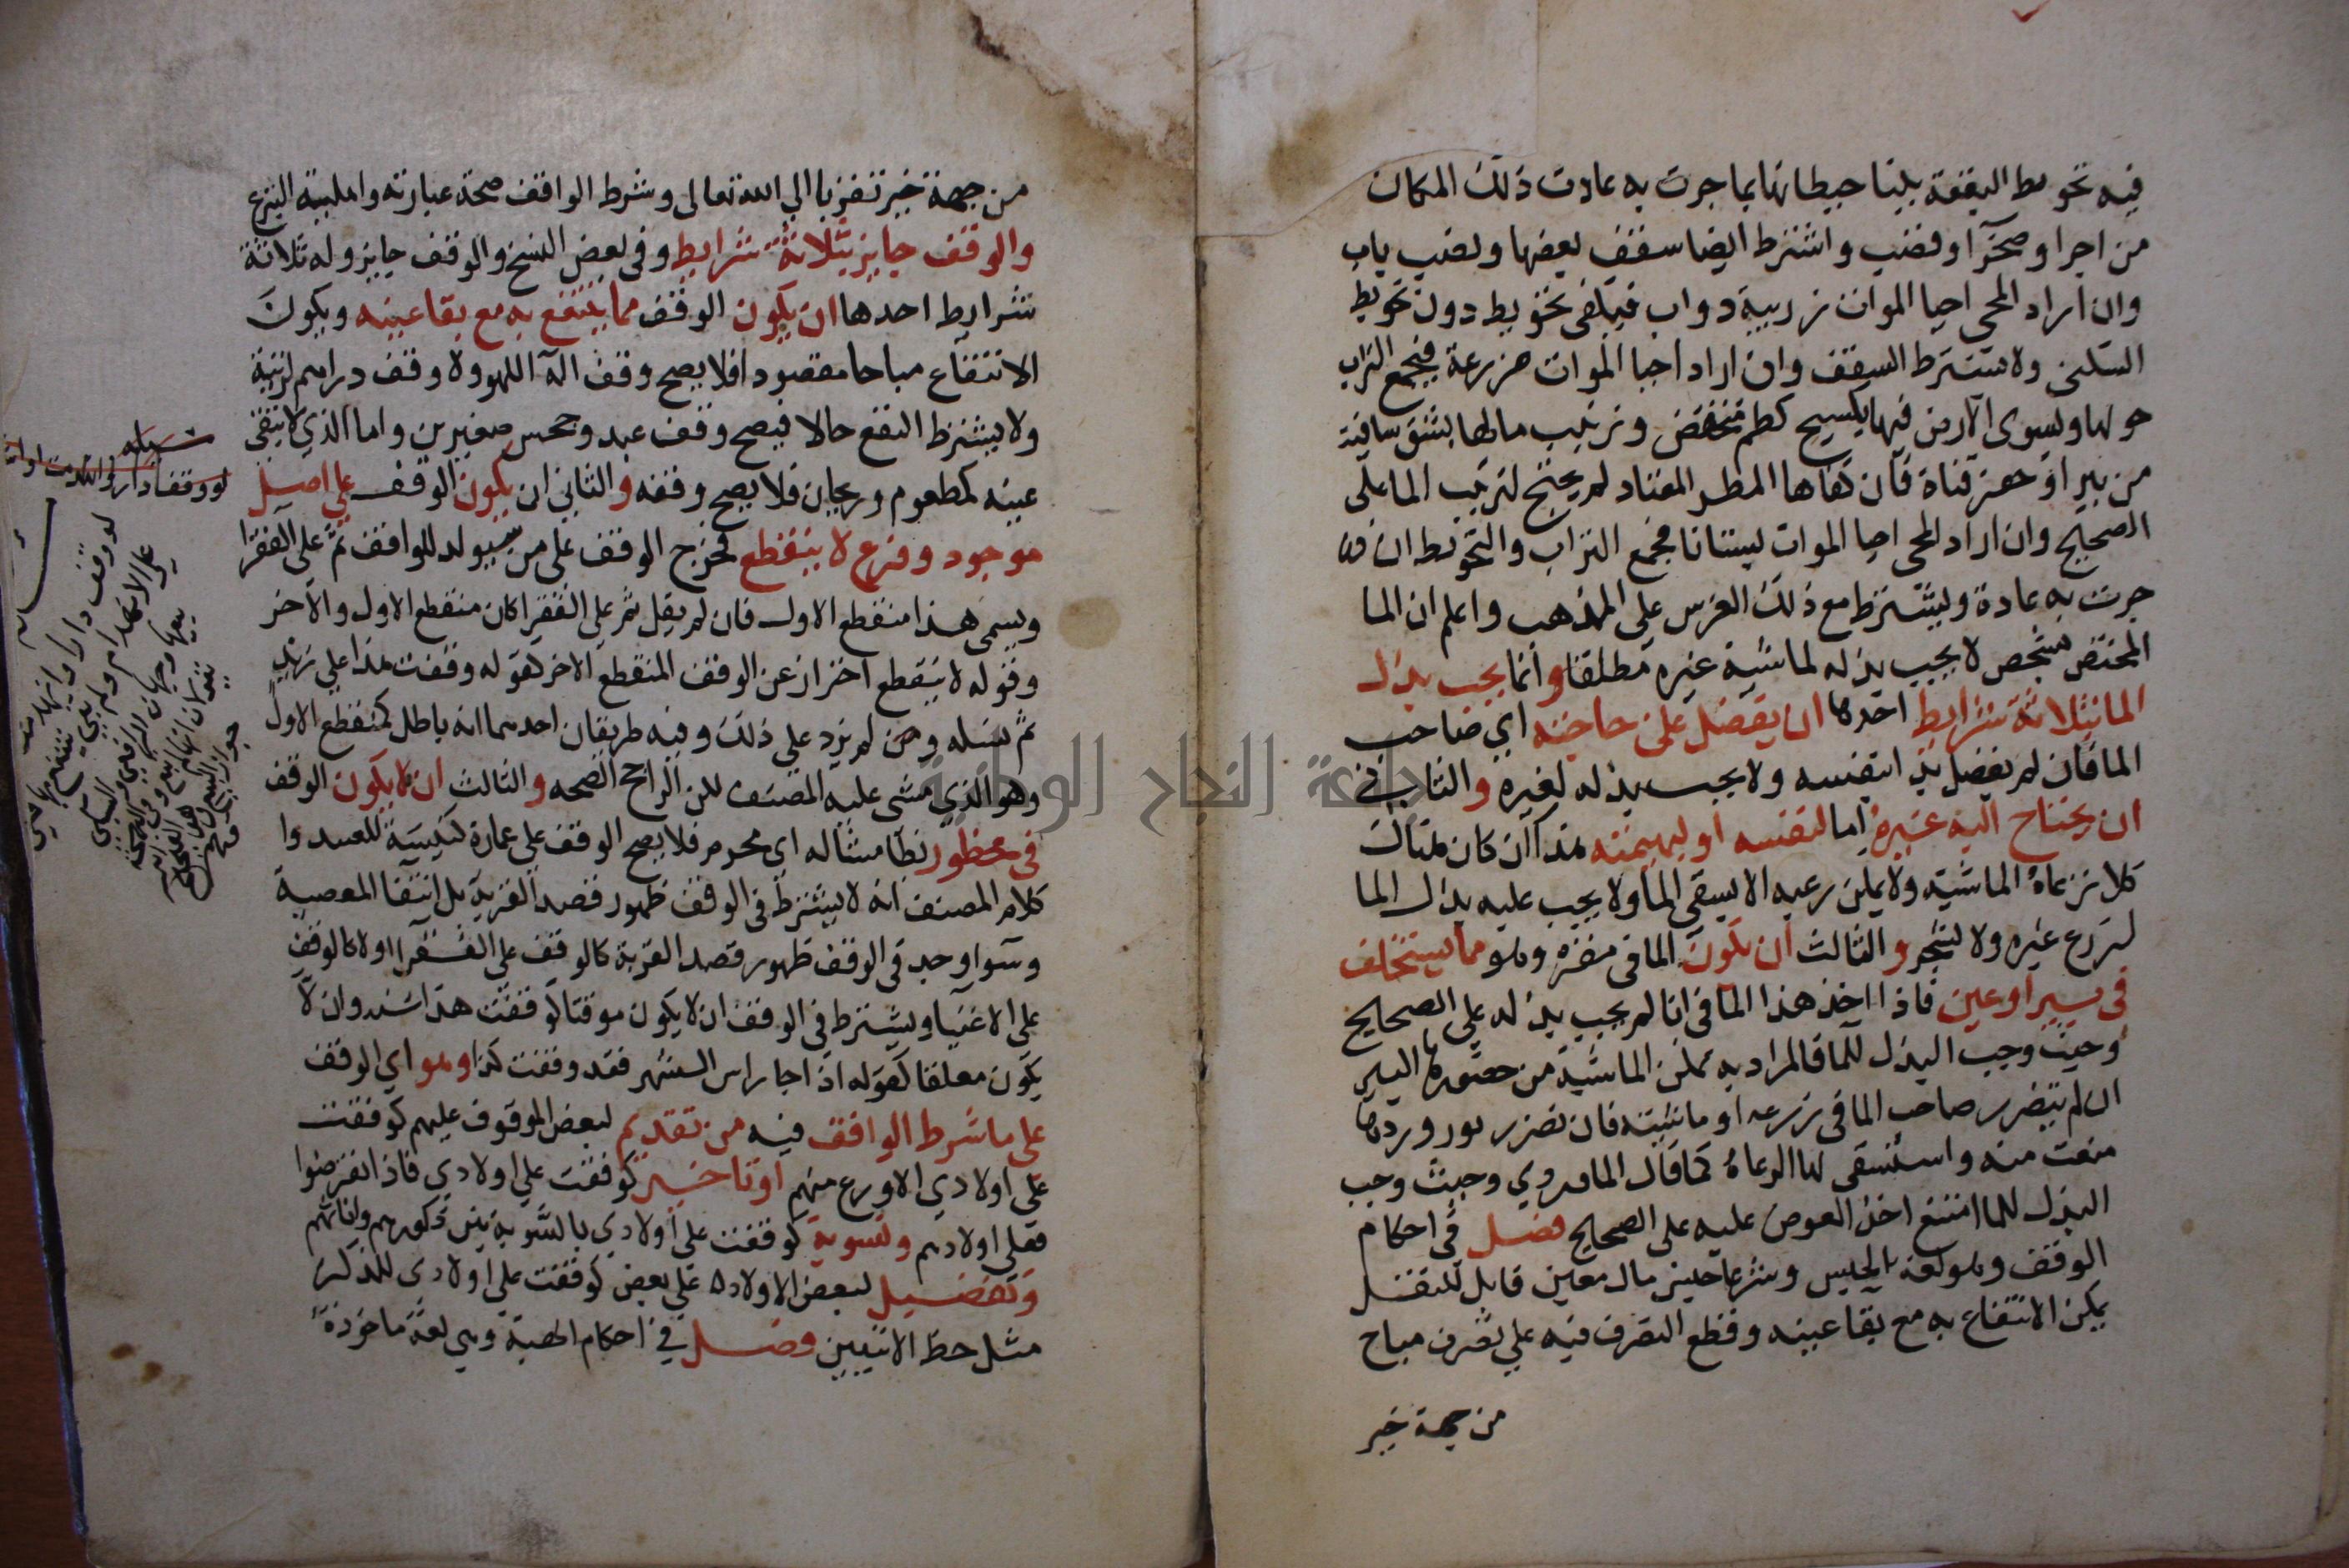 فيه تحويط البقعة ببنا حيطانها بما جرت به عادت ذلك المكان
من اجرا وحجرا وقصب واشترط ايضا سقف بعضها ونصب باب
وان اراد المحي احيا الموات زريبة دواب فيكفي تحويط دون تحويط
السكنى ولا يشترط السقف وان اراد احيا الموات مزرعة فيجمع التراب
حولها ويسوى الارض فيها بكسح كطم منخفض وترتيب مالها بشق ساقية
من بير او حفر قناة فان كفاها المطر المعتاد لم يحتج لترتيب الما على
الصحيح وان اراد المحي احيا الموات بستانا فجمع التراب والتحويط ان
جرت به عادة ويشترط مع ذلك الغرس على المذهب واعلم ان الما
المختص بشخص لا يجب بذله لماشية غيره مطلقا وانما يجب بذل
الما بثلاثة شرايط احدها ان يفضل على حاجته اي صاحب
الما فان لم يفضل بدا بنفسه ولا يجب بذله لغيره والثاني
ان يحتاج اليه غيره اما لنفسه او لبهيمته هذا ان كان هناك
كلا ترعاه الماشية ولا يمكن رعيه الا بسقي الما ولا يجب عليه بذل الما
لزرع غيره ولا لشجر والثالث ان يكون الما في مقره وهو مما يستخلف
في بير او عين فاذا اخذ هذا الما في انا لم يجب بذله على الصحيح
وحيث وجب البذل للما فالمراد به تمكن الماشية من حضورها البير
ان لم يتضرر صاحب الما في زرعه او ماشيته فان تضرر بورودها
منعت منه واستسقى لها الرعاة كما قال الماوردي وحيث وجب
البذل للما امتنع اخذ العوض عليه على الصحيح فصل في احكام
الوقف وهو لغة الحبس وشرعا حبس مال معين قابل للنقل
يمكن الانتفاع به مع بقا عينه وقطع التصرف فيه على تصرف مباح
من جهة خير
من جهة خير تقربا الي الله تعالى وشرط الواقف صحة عبارته واهلية التبرع
والوقف جايز بثلاثة شرايط وفي بعض النسخ والوقف جايز وله ثلاثة
شرايط احدها ان يكون الوقف مما ينتفع به مع بقا عينه ويكون
الانتفاع مباحا مقصودا فلا يصح وقف الة اللهو ولا وقف دراهم لزينة
ولا يشترط النفع حالا فيصح وقف عبد وجحش صغيرين واما الذي لا يبقى
عينه كمطعوم وريحان فلا يصح وقفه والثاني ان يكون الوقف على اصل
موجود وفرع لا ينقطع فخرج الوقف على من سيولد للواقف ثم على الفقرا
ويسمى هذا منقطع الاول فان لم يقل ثم على الفقرا كان منقطع الاول والاخر
وقوله لا ينقطع احتراز عن الوقف المنقطع الاخر كقوله وقفت هذا على زيد
ثم نسله ولم يزد على ذلك وفيه طريقان احدهما انه باطل كمنقطع الاول
وهو الذي مشى عليه المصنف لكن الراجح الصحه والثالث ان لا يكون الوقف
في محظور بظا مشاله اي محرم فلا يصح الوقف على عمارة كنيسة للعبد وا
كلام المصنف انه لا يشترط في الوقف ظهور قصد القربة بل انتفا المعصية
وسوا وجد في الوقف ظهور قصد القربة كالوقف على الفقرا اولا كالوقف
على الاغنيا ويشترط في الوقف ان لا يكون موقتا كوقفت هذا سنه وان لا
يكون معلقا كقوله اذا جا راس الشهر فقد وقفت كذا وهو اي الوقف
على ما شرط الواقف فيه من تقديم لبعض الموقوف عليهم كوقفت
على اولادي الاورع منهم او تاخير كوقفت على اولادي فاذا انقرضوا
فعلى اولادهم وتسوية كوقفت على اولادي بالسوية بين ذكورهم واناثهم
وتفضيل لبعض الاولاد على بعض كوقفت على اولادي للذكر
مثل حظ الانثيين فصل في احكام الهبة وهي لغة ماخوذة
لو وقف دارا
جامعة النجاح الوطنية